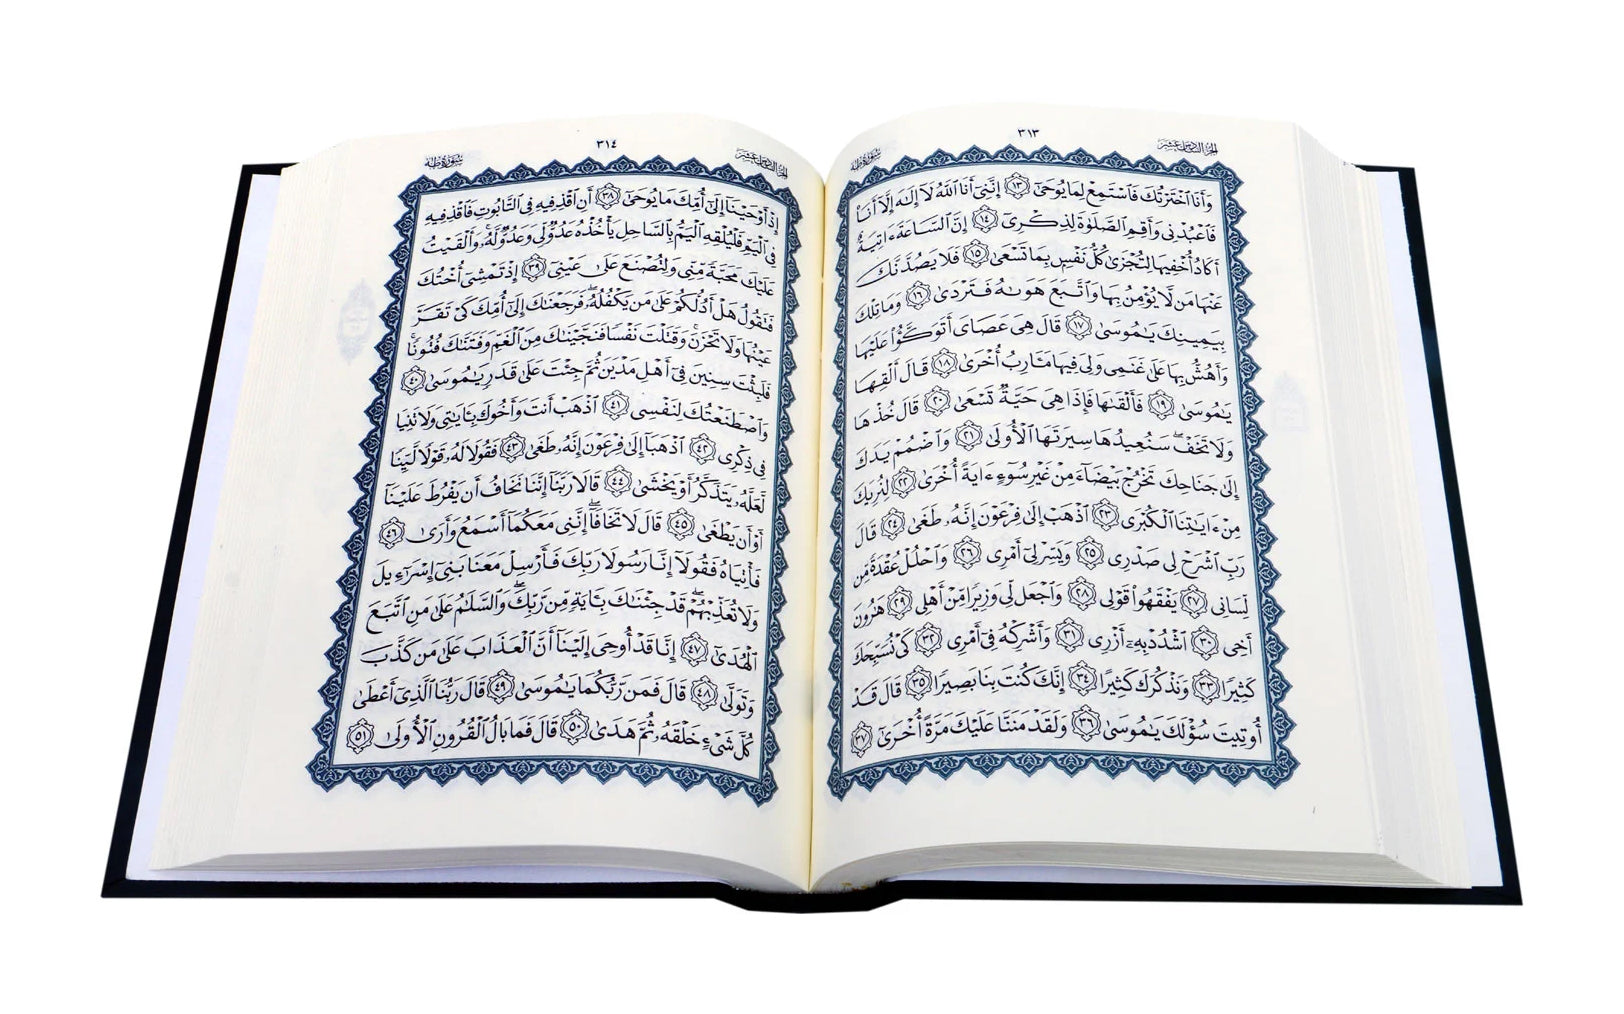 الجزء السادس عشر
٣١٣
سورة طه
وَأَنَا ٱخْتَرْتُكَ فَٱسْتَمِعْ لِمَا يُوحَىٰٓ ١٣ إِنَّنِىٓ أَنَا ٱللَّهُ لَآ إِلَٰهَ إِلَّآ أَنَا۠
فَٱعْبُدْنِى وَأَقِمِ ٱلصَّلَوٰةَ لِذِكْرِىٓ ١٤ إِنَّ ٱلسَّاعَةَ ءَاتِيَةٌ
أَكَادُ أُخْفِيهَا لِتُجْزَىٰ كُلُّ نَفْسٍۭ بِمَا تَسْعَىٰ ١٥ فَلَا يَصُدَّنَّكَ
عَنْهَا مَن لَّا يُؤْمِنُ بِهَا وَٱتَّبَعَ هَوَىٰهُ فَتَرْدَىٰ ١٦ وَمَا تِلْكَ
بِيَمِينِكَ يَٰمُوسَىٰ ١٧ قَالَ هِىَ عَصَاىَ أَتَوَكَّؤُا۟ عَلَيْهَا
وَأَهُشُّ بِهَا عَلَىٰ غَنَمِى وَلِىَ فِيهَا مَـَٔارِبُ أُخْرَىٰ ١٨ قَالَ أَلْقِهَا
يَٰمُوسَىٰ ١٩ فَأَلْقَىٰهَا فَإِذَا هِىَ حَيَّةٌ تَسْعَىٰ ٢٠ قَالَ خُذْهَا
وَلَا تَخَفْ سَنُعِيدُهَا سِيرَتَهَا ٱلْأُولَىٰ ٢١ وَٱضْمُمْ يَدَكَ
إِلَىٰ جَنَاحِكَ تَخْرُجْ بَيْضَآءَ مِنْ غَيْرِ سُوٓءٍ ءَايَةً أُخْرَىٰ ٢٢ لِنُرِيَكَ
مِنْ ءَايَٰتِنَا ٱلْكُبْرَى ٢٣ ٱذْهَبْ إِلَىٰ فِرْعَوْنَ إِنَّهُۥ طَغَىٰ ٢٤ قَالَ
رَبِّ ٱشْرَحْ لِى صَدْرِى ٢٥ وَيَسِّرْ لِىٓ أَمْرِى ٢٦ وَٱحْلُلْ عُقْدَةً مِّن
لِّسَانِى ٢٧ يَفْقَهُوا۟ قَوْلِى ٢٨ وَٱجْعَل لِّى وَزِيرًا مِّنْ أَهْلِى ٢٩ هَٰرُونَ
أَخِى ٣٠ ٱشْدُدْ بِهِۦٓ أَزْرِى ٣١ وَأَشْرِكْهُ فِىٓ أَمْرِى ٣٢ كَىْ نُسَبِّحَكَ
كَثِيرًا ٣٣ وَنَذْكُرَكَ كَثِيرًا ٣٤ إِنَّكَ كُنتَ بِنَا بَصِيرًا ٣٥ قَالَ قَدْ
أُوتِيتَ سُؤْلَكَ يَٰمُوسَىٰ ٣٦ وَلَقَدْ مَنَنَّا عَلَيْكَ مَرَّةً أُخْرَىٰٓ ٣٧
الجزء السادس عشر
٣١٤
سورة طه
إِذْ أَوْحَيْنَآ إِلَىٰٓ أُمِّكَ مَا يُوحَىٰٓ ٣٨ أَنِ ٱقْذِفِيهِ فِى ٱلتَّابُوتِ فَٱقْذِفِيهِ
فِى ٱلْيَمِّ فَلْيُلْقِهِ ٱلْيَمُّ بِٱلسَّاحِلِ يَأْخُذْهُ عَدُوٌّ لِّى وَعَدُوٌّ لَّهُۥ وَأَلْقَيْتُ
عَلَيْكَ مَحَبَّةً مِّنِّى وَلِتُصْنَعَ عَلَىٰ عَيْنِىٓ ٣٩ إِذْ تَمْشِىٓ أُخْتُكَ
فَتَقُولُ هَلْ أَدُلُّكُمْ عَلَىٰ مَن يَكْفُلُهُۥ فَرَجَعْنَٰكَ إِلَىٰٓ أُمِّكَ كَىْ تَقَرَّ
عَيْنُهَا وَلَا تَحْزَنَ وَقَتَلْتَ نَفْسًا فَنَجَّيْنَٰكَ مِنَ ٱلْغَمِّ وَفَتَنَّٰكَ فُتُونًا
فَلَبِثْتَ سِنِينَ فِىٓ أَهْلِ مَدْيَنَ ثُمَّ جِئْتَ عَلَىٰ قَدَرٍ يَٰمُوسَىٰ ٤٠
وَٱصْطَنَعْتُكَ لِنَفْسِى ٤١ ٱذْهَبْ أَنتَ وَأَخُوكَ بِـَٔايَٰتِى وَلَا تَنِيَا
فِى ذِكْرِى ٤٢ ٱذْهَبَآ إِلَىٰ فِرْعَوْنَ إِنَّهُۥ طَغَىٰ ٤٣ فَقُولَا لَهُۥ قَوْلًا لَّيِّنًا
لَّعَلَّهُۥ يَتَذَكَّرُ أَوْ يَخْشَىٰ ٤٤ قَالَا رَبَّنَآ إِنَّنَا نَخَافُ أَن يَفْرُطَ عَلَيْنَآ
أَوْ أَن يَطْغَىٰ ٤٥ قَالَ لَا تَخَافَآ إِنَّنِى مَعَكُمَآ أَسْمَعُ وَأَرَىٰ ٤٦
فَأْتِيَاهُ فَقُولَآ إِنَّا رَسُولَا رَبِّكَ فَأَرْسِلْ مَعَنَا بَنِىٓ إِسْرَٰٓءِيلَ
وَلَا تُعَذِّبْهُمْ قَدْ جِئْنَٰكَ بِـَٔايَةٍ مِّن رَّبِّكَ وَٱلسَّلَٰمُ عَلَىٰ مَنِ ٱتَّبَعَ
ٱلْهُدَىٰٓ ٤٧ إِنَّا قَدْ أُوحِىَ إِلَيْنَآ أَنَّ ٱلْعَذَابَ عَلَىٰ مَن كَذَّبَ
وَتَوَلَّىٰ ٤٨ قَالَ فَمَن رَّبُّكُمَا يَٰمُوسَىٰ ٤٩ قَالَ رَبُّنَا ٱلَّذِىٓ أَعْطَىٰ
كُلَّ شَىْءٍ خَلْقَهُۥ ثُمَّ هَدَىٰ ٥٠ قَالَ فَمَا بَالُ ٱلْقُرُونِ ٱلْأُولَىٰ ٥١